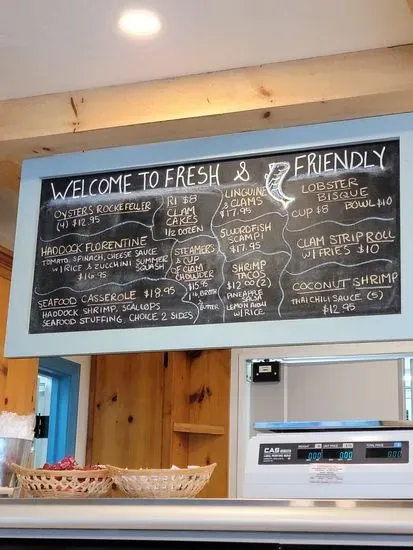 WELCOME TO FRESH & FRIENDLY
OYSTERS ROCKEFELLER
(4) $12.95
HADDOCK FLORENTINE
TOMATO, SPINACH, CHEESE SAUCE
W/ RICE & ZUCCHINI SUMMER SQUASH
$16.95
SEAFOOD CASSEROLE $18.95
HADDOCK SHRIMP, SCALLOPS
SEAFOOD STUFFING, CHOICE 2 SIDES
RI $8
CLAM
CAKES
1/2 DOZEN
STEAMERS
& CUP
OF CLAM
CHOWDER
$15.95
BROTH
BUTTER
LINGUINE
& CLAMS
$17.95
SWORDFISH
SCAMPI
$17.95
SHRIMP
TACOS
$12.00 (2)
PINEAPPLE
SALSA
LEMON AIOLI
W/ RICE
LOBSTER
BISQUE
CUP $8 BOWL $10
CLAM STRIP ROLL
W/ FRIES $10
COCONUT SHRIMP
THAI CHILI SAUCE (5)
$12.95
CAS